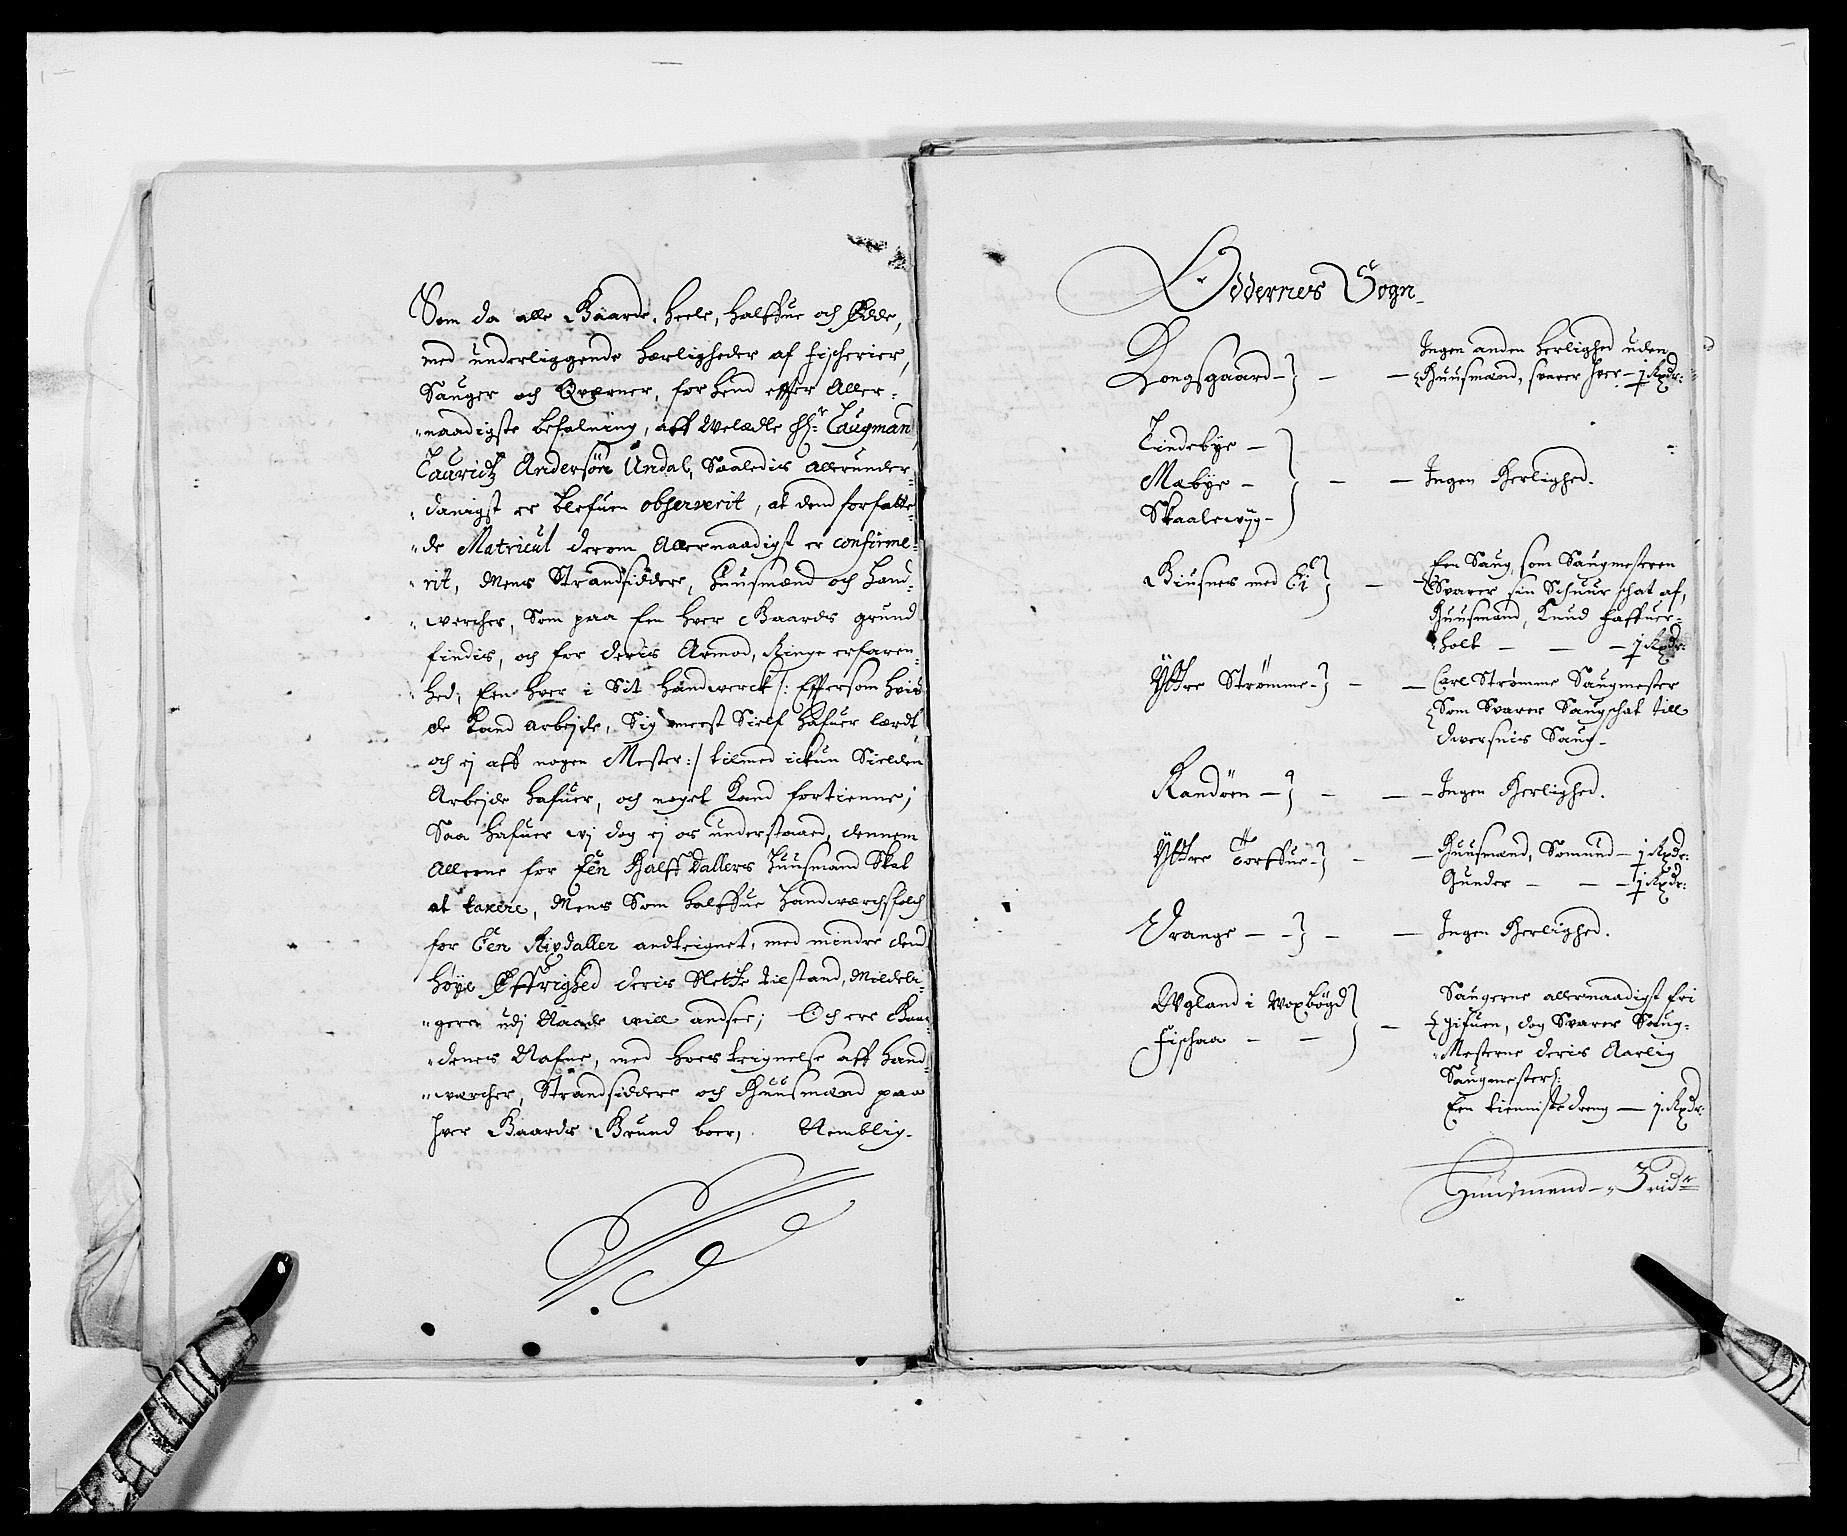 Som da alle Gaarde, Heele, halffue och Ødde,
med underliggende herligheder af fischerier,
Sauger och Qverner, for hend effter Aller-
naadigste befalning, aff Welædle Hr: Laugmand
Lauridtz Andersön Undal, Saaledis allerunder-
danigst er blefuen observerit, at dend forfatte-
de Matricul derom Allernaadigst er confirme-
rit, Mens Strandsiddere, huusmænd och Hand-
wercher, Som paa Een hver Gaards grund
findis, och for deris Armod, Ringe erfaren-
hed, Een hver i Sit handwerck /: Efftersom hvis
de kand arbejde, Sig meest Sielf hafuer lærdt,
och ej aff nogen Mester :/ tilmed ickun Sielden
Arbejde hafuer, och noget kand fortienne;
Saa hafuer wj dog ej os understaaed, dennem
Alleene for Een Halff Dallers Huusmand Skat
at taxere, Mens Som halffue Handwerchsfolch
for Een Rixdaller andteignet, med mindre dend
høye Øffrighed deris Slette tilstand, Mildeli-
gere udj Naade will andsee; Och ere Gaar-
denes Nafne, med hoes teignelse aff Hand-
wercher, Strandsiddere och Huusmænd paa
Hver Gaards Grund boer, Nemblig-
Oddernes Sogn
Kongsgaard - } - - Ingen anden herlighed uden
Huusmænd, svarer hver - 1 Rxdr:
Lindebye -
Mæbye - } - - Ingen Herlighed.
Skaalewiig -
Giusnes med Ei } - Een Saug, som Saugmesteren
Svarer sin Schuur schat af,
Huusmand, Knud haffuer-
holt - - - 1 Rxdr:
Yttre Strömme - } - - Carl Strømme Saugmester
Som Svarer Saugschat till
dversnis Saug-
Randöen - } - - Ingen Herlighed.
Yttre Torffue - } - - Huusmænd, Somund - 1 Rxdr:
Gunder - - - 1 Rxdr:
Vrange - - } - - Ingen Herlighed.
Wgland i Woxbögd
Fischaa - - } - Saugerne allernaadigst fri
gifuen, dog Svarer Saug-
Mesterne deris Aarlig
Saugmester :
Een tienniste dreng - 1. Rxdr:
Huusmend - 3 ridr